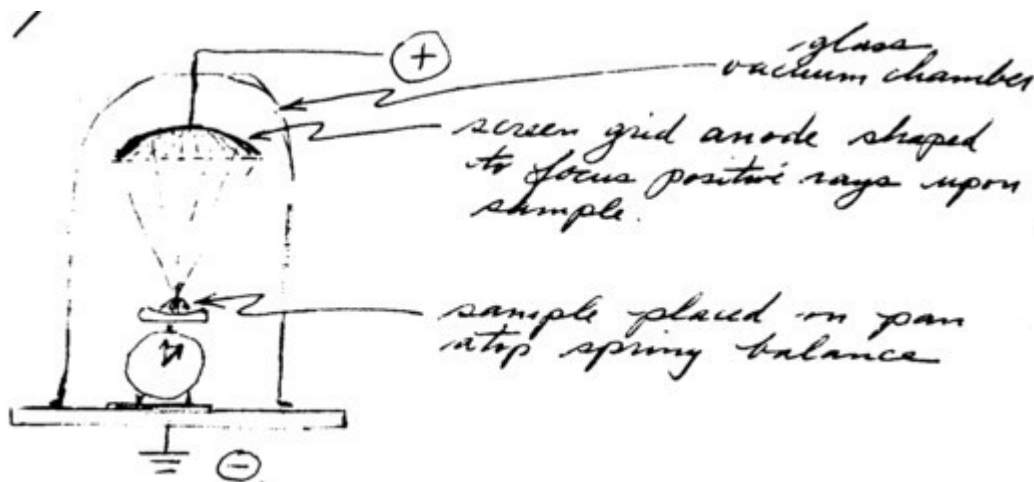 +
glass
vacuum chamber
screen grid anode shaped
to focus positive rays upon
sample.
sample placed on pan
atop spring balance
−